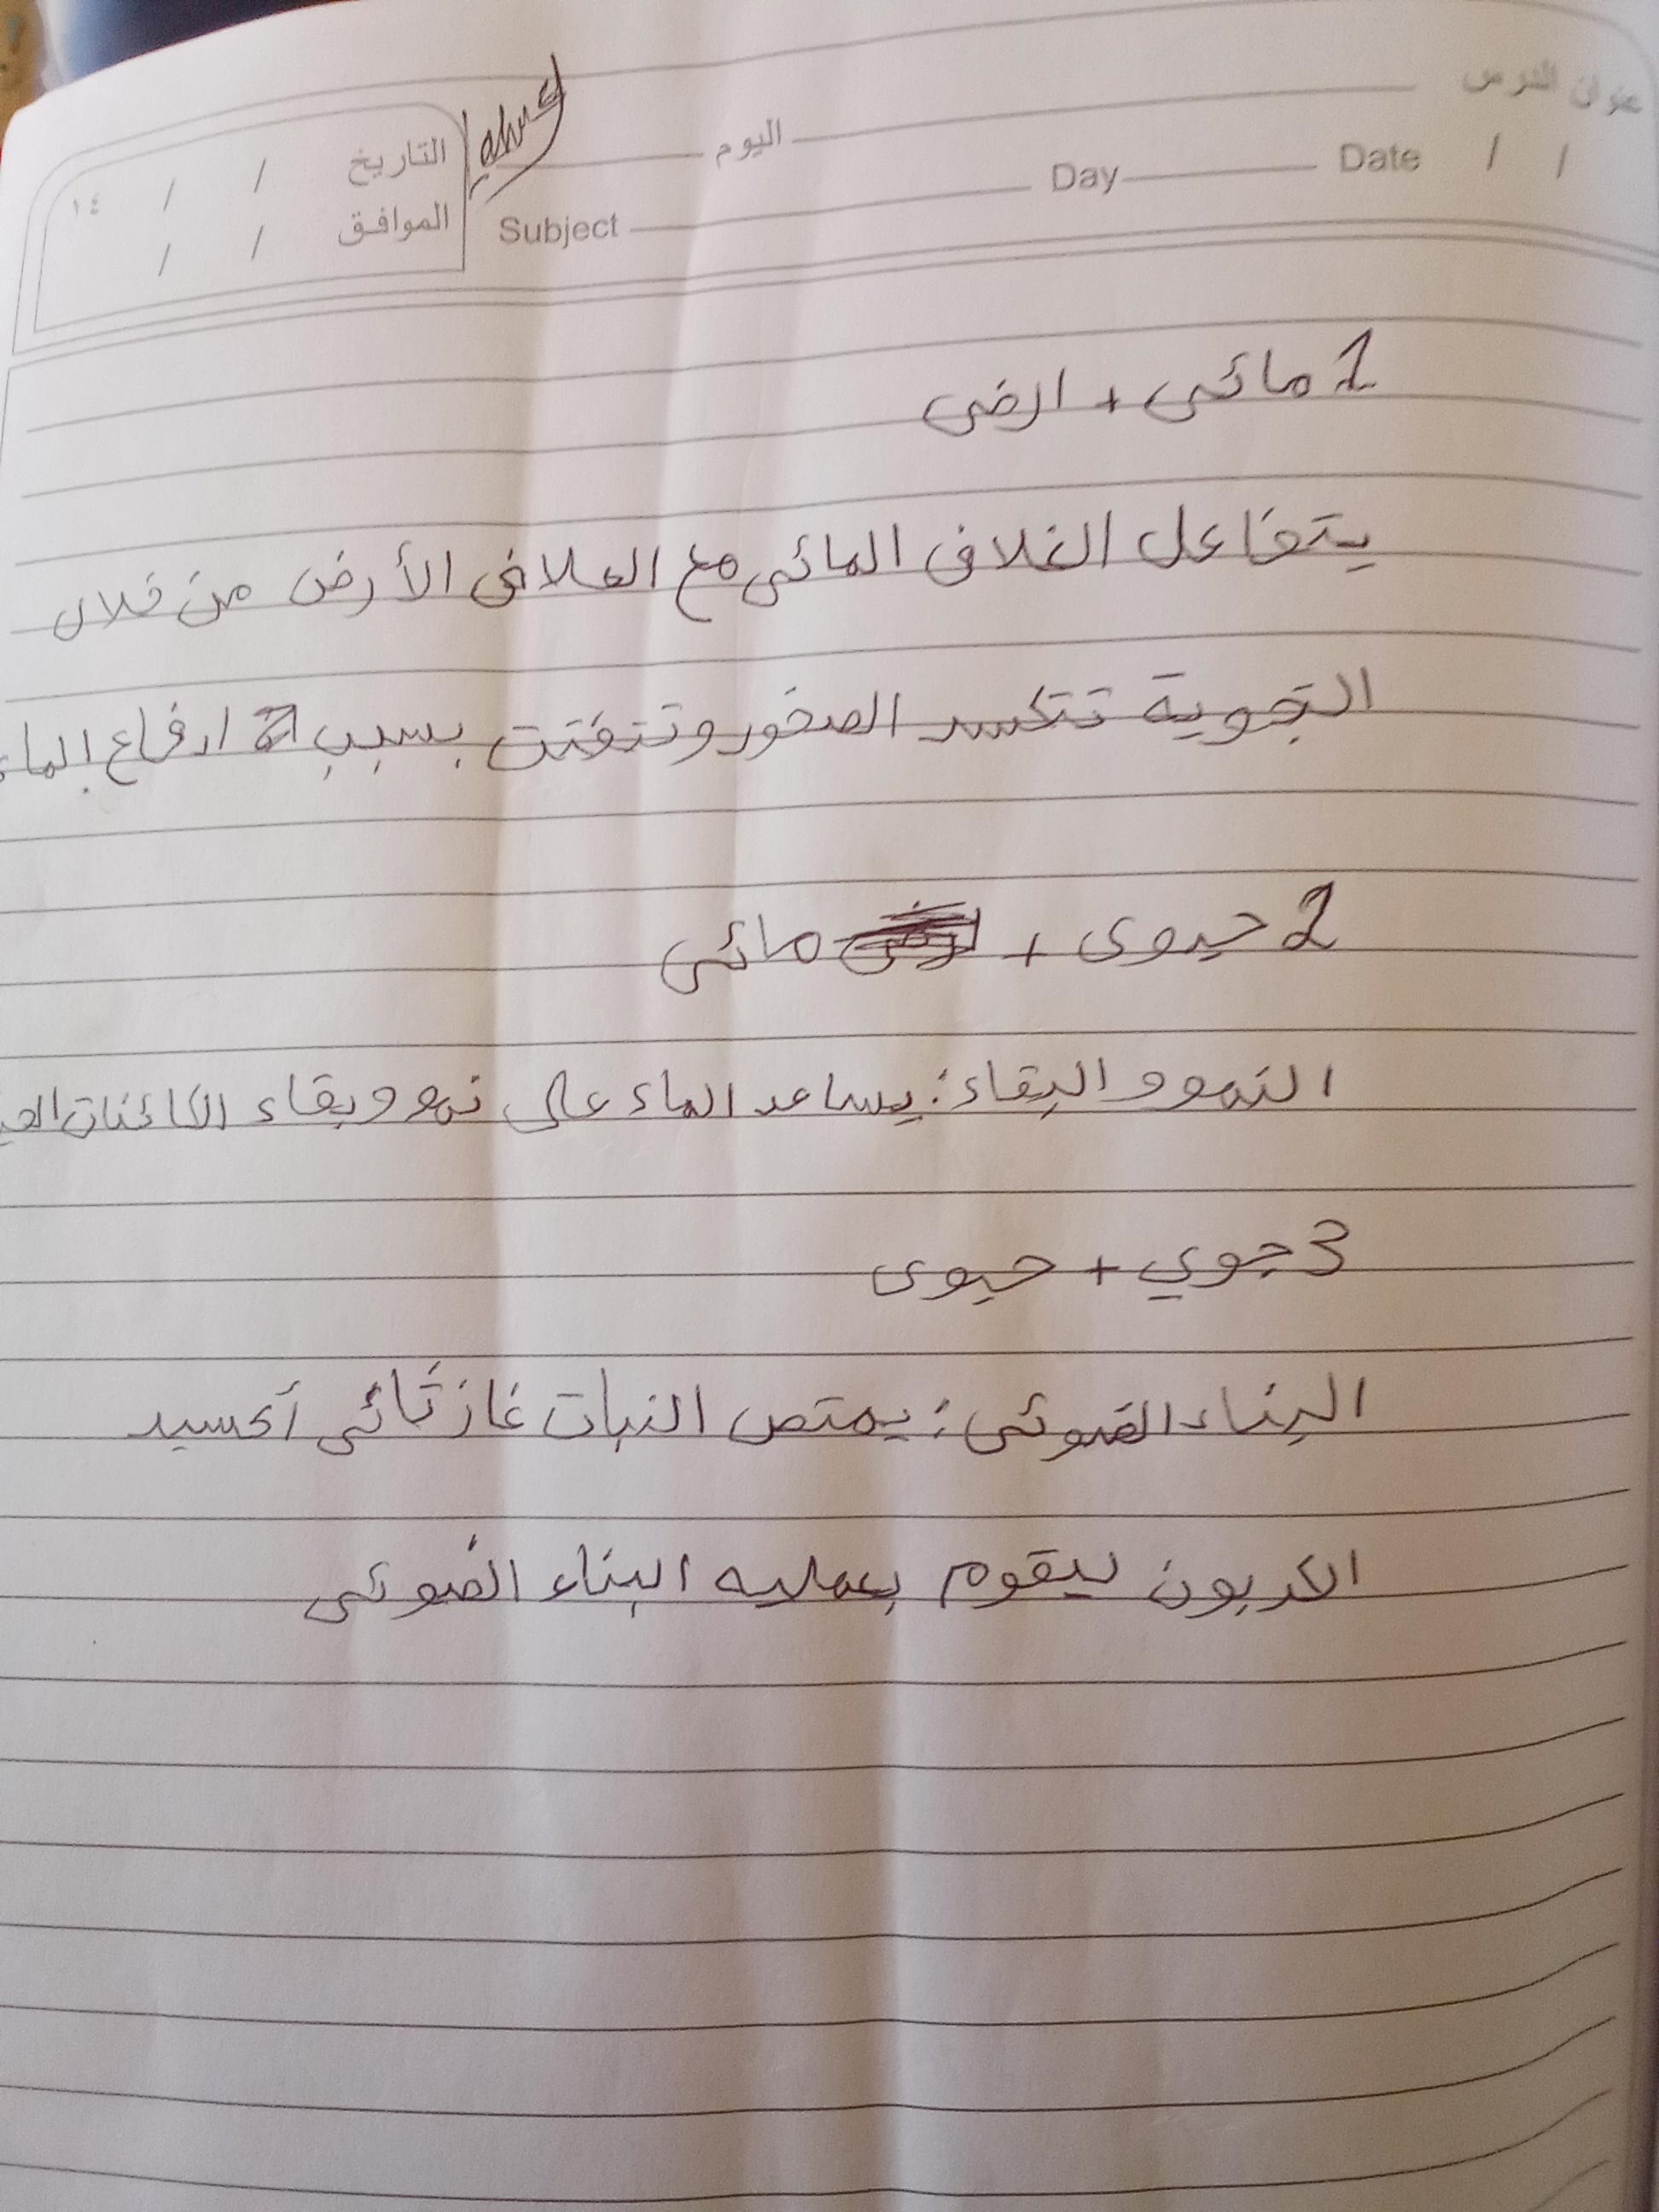 عنوان الدرس
اليوم
التاريخ / / ١٤
Date / /
Day
Subject
الموافق / /
1 مائى + ارضى
يتفاعل الغلاف المائى مع الغلاف الأرض من خلال
التجوية تتكسر الصخور وتتفتت بسبب ارفاع الماء
2 حيوى + مائى
النمو و البقاء : يساعد الماء على نمو و بقاء الكائنات
3 جوي + حيوى
البناء الضوئى : يمتص النبات غاز ثائى أكسيد
الكربون ليقوم بعمليه البناء الضوئى